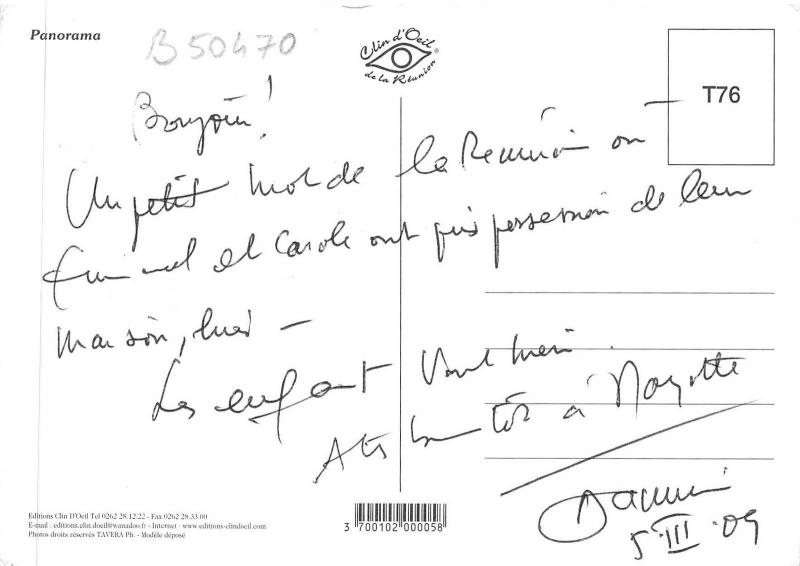 Panorama
B50470
Clin d'Oeil
de la Réunion
T76
Bonjour!
Un petit mot de la Réunion où
et Carole ont pris possession de leur
maison, hier –
Les enfant vont bien.
A très bientôt à Mayotte
5 III 09
Editions Clin D'Oeil Tel 0262 28.12.22 - Fax 0262 28.33.00
E-mail : editions.clin.doeil@wanadoo.fr - Internet : www.editions-clindoeil.com
Photos droits réservés TAVERA Ph. - Modèle déposé
3 700102 000058